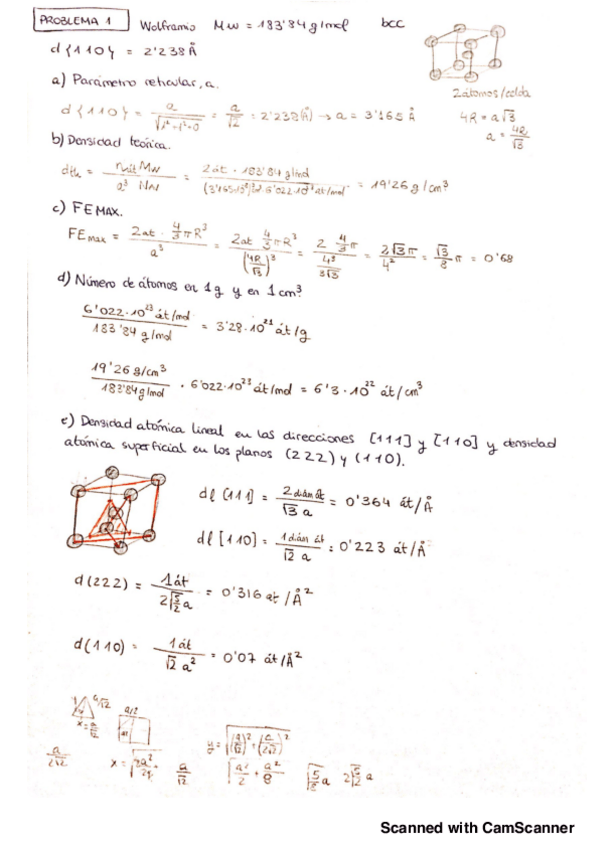 PROBLEMA 1 Wolframio Mw = 183'84 g/mol bcc
d {110} = 2'238 Å
a) Parámetro reticular, a.
2 átomos/celda
d {110} = a/√(1²+1²+0) = a/√2 = 2'238 (Å) → a = 3'165 Å
4R = a√3
a = 4R/√3
b) Densidad teórica.
dth = nát Mw / a³ NAv = 2 át · 183'84 g/mol / (3'165·10⁻⁸)³ · 6'022·10²³ át/mol = 19'26 g/cm³
c) FE MAX.
FE max = 2at · 4/3 πR³ / a³ = 2at 4/3 πR³ / (4R/√3)³ = 2 4/3 π / 4³/3√3 = 2√3 π / 4² = √3/8 π = 0'68
d) Número de átomos en 1g y en 1 cm³
6'022·10²³ át/mol / 183'84 g/mol = 3'28·10²¹ át/g
19'26 g/cm³ / 183'84 g/mol · 6'022·10²³ át/mol = 6'3·10²² át/cm³
e) Densidad atómica lineal en las direcciones [111] y [110] y densidad
atómica superficial en los planos (222) y (110).
dl [111] = 2 diám át / √3 a = 0'364 át/Å
dl [110] = 1 diám át / √2 a = 0'223 át/Å
d(222) = 1 át / = 0'316 at/Å²
d(110) = 1 át / √2 a² = 0'07 át/Å²
Scanned with CamScanner